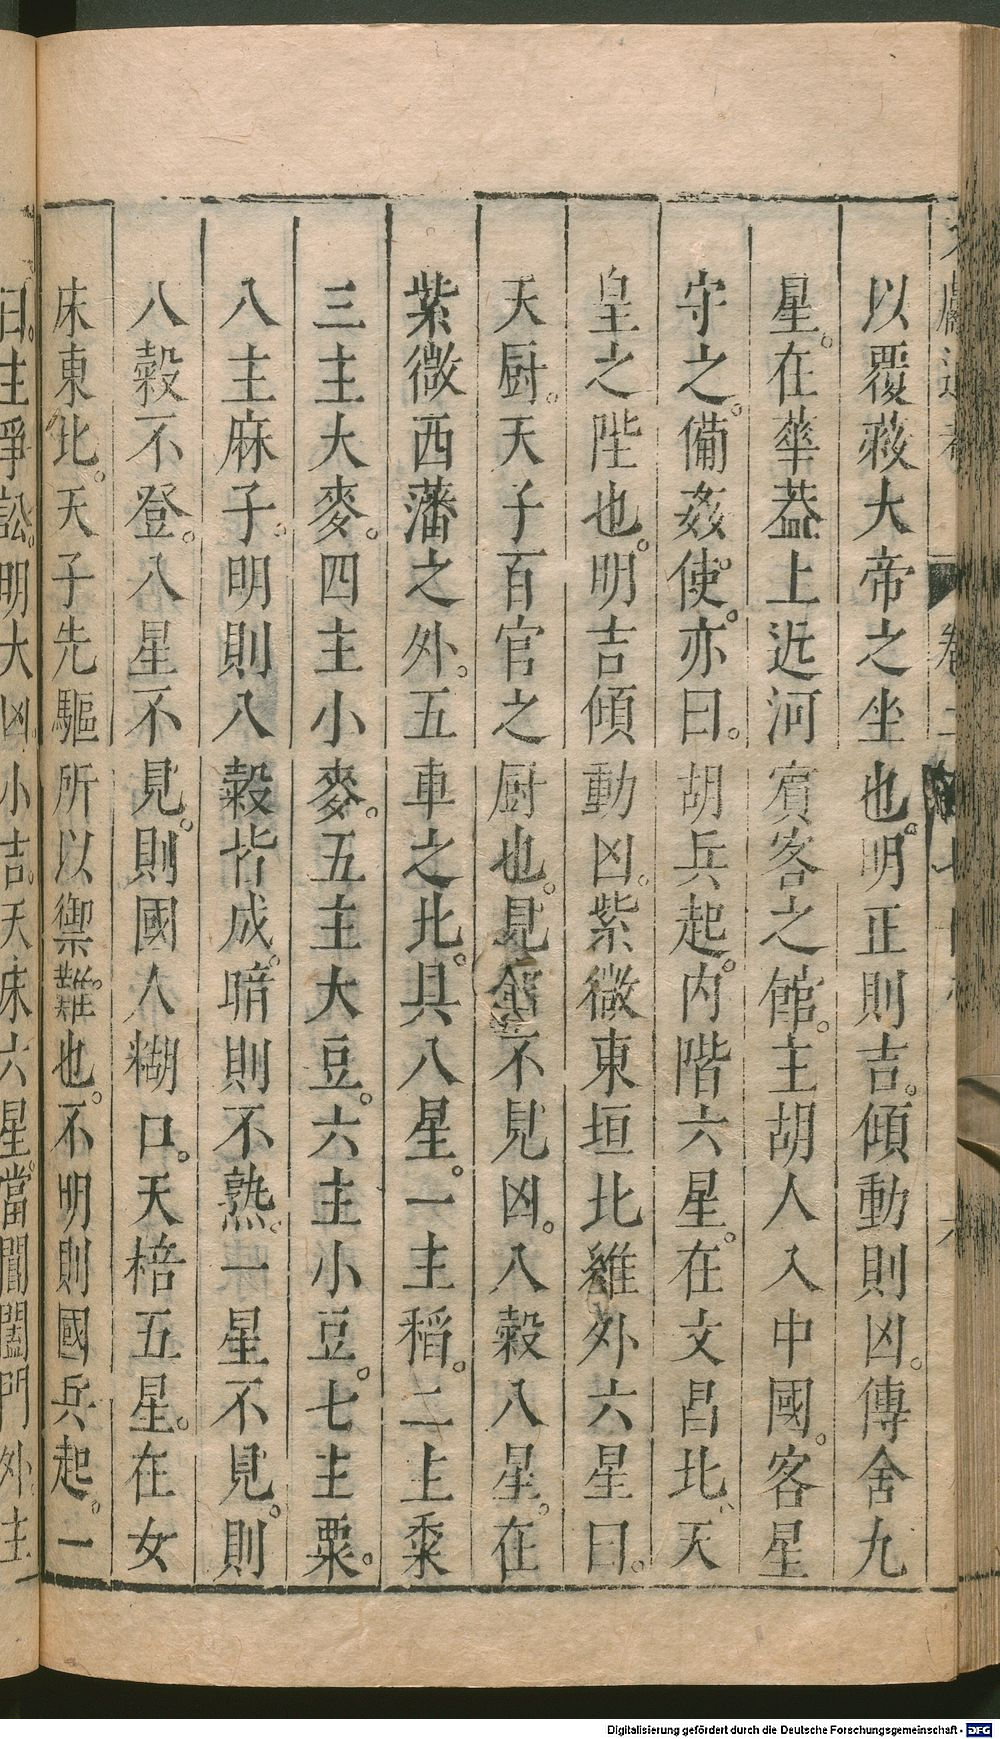 以覆蔽大帝之坐也。明正則吉。傾動則凶。傳舍九
星。在華葢上近河賔客之館。主胡人入中國。客星
守之。備姦使。亦曰。胡兵起。內階六星。在文昌北、天
皇之陛也。明吉傾動凶。紫微東垣北維外六星曰。
天厨。天子百官之厨也。見不見凶。八榖八星。在
紫微西藩之外。五車之北。具八星。一主稻。二主黍
三主大麥。四主小麥。五主大豆。六主小豆。七主粟。
八主麻子。明則八榖皆成。暗則不熟。一星不見。則
八榖不登。八星不見。則國人糊口。天棓五星。在女
床東北。天子先驅所以禦難也。不明則國兵起。一
曰。主爭訟。明大凶小吉天床六星。當閶闔門外。主
卷二
六
Digitalisierung gefördert durch die Deutsche Forschungsgemeinschaft - DFG